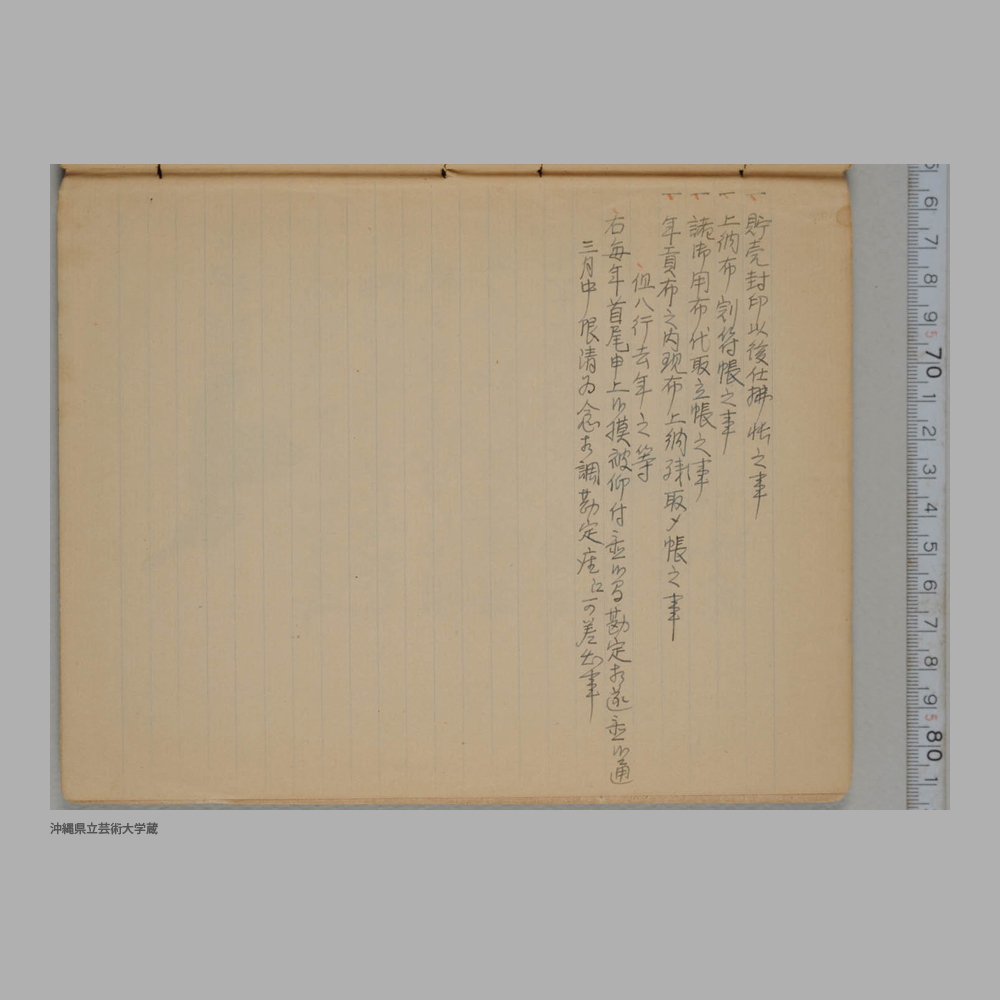 一 貯売封印以後仕拂帳之事
一 上納布割符帳之事
一 諸御用布代取立帳之事
一 年貢布之内現布上納残取〆帳之事
但八行去年之等
右毎年首尾申上候摸被仰付置候間勘定相遂置候通
三月中限清為念相調勘定座江可差出事
6 7 8 9 5 70 1 2 3 4 5 6 7 8 9 5 80 1
沖縄県立芸術大学蔵